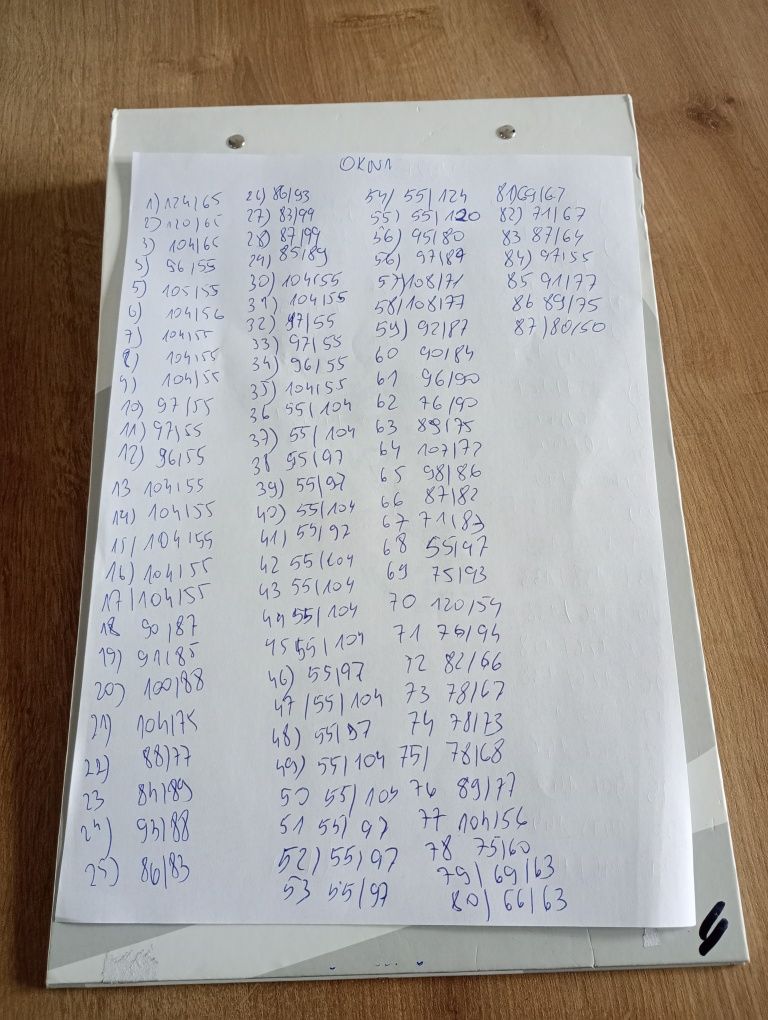 OKNA
1) 124/65
2) 120/65
3) 104/65
3) 96/55
5) 105/55
6) 104/56
7) 104/55
8) 104/55
9) 104/55
10) 97/55
11) 97/55
12) 96/55
13 104/55
14) 104/55
15/ 104/55
16) 104/55
17/104/55
18 90/87
19) 91/85
20) 100/88
21) 104/75
22) 88/77
23 84/89
24) 93/88
25) 86/83
26) 86/93
27) 83/99
28) 87/99
29) 85/89
30) 104/55
31) 104/55
32) 97/55
33) 97/55
34) 96/55
35) 104/55
36 55/104
37) 55/104
38 55/97
39) 55/97
40) 55/104
41) 55/97
42 55/104
43 55/104
44 55/104
45 55/104
46) 55/97
47/55/104
48) 55/97
49) 55/104
50 55/104
51 55/97
52) 55/97
53 55/97
54/ 55/124
55) 55/120
56) 95/80
56) 97/87
57/108/71
58/108/77
59) 92/87
60 90/84
61 96/90
62 76/90
63 89/75
64 107/77
65 98/86
66 87/82
67 71/87
68 55/97
69 75/93
70 120/54
71 76/94
72 82/66
73 78/67
74 78/73
75/ 78/68
76 89/77
77 104/56
78 75/60
79/ 69/63
80/ 66/63
81)69/67
82) 71/67
83 87/64
84) 97/55
85 91/77
86 89/75
87/80/50